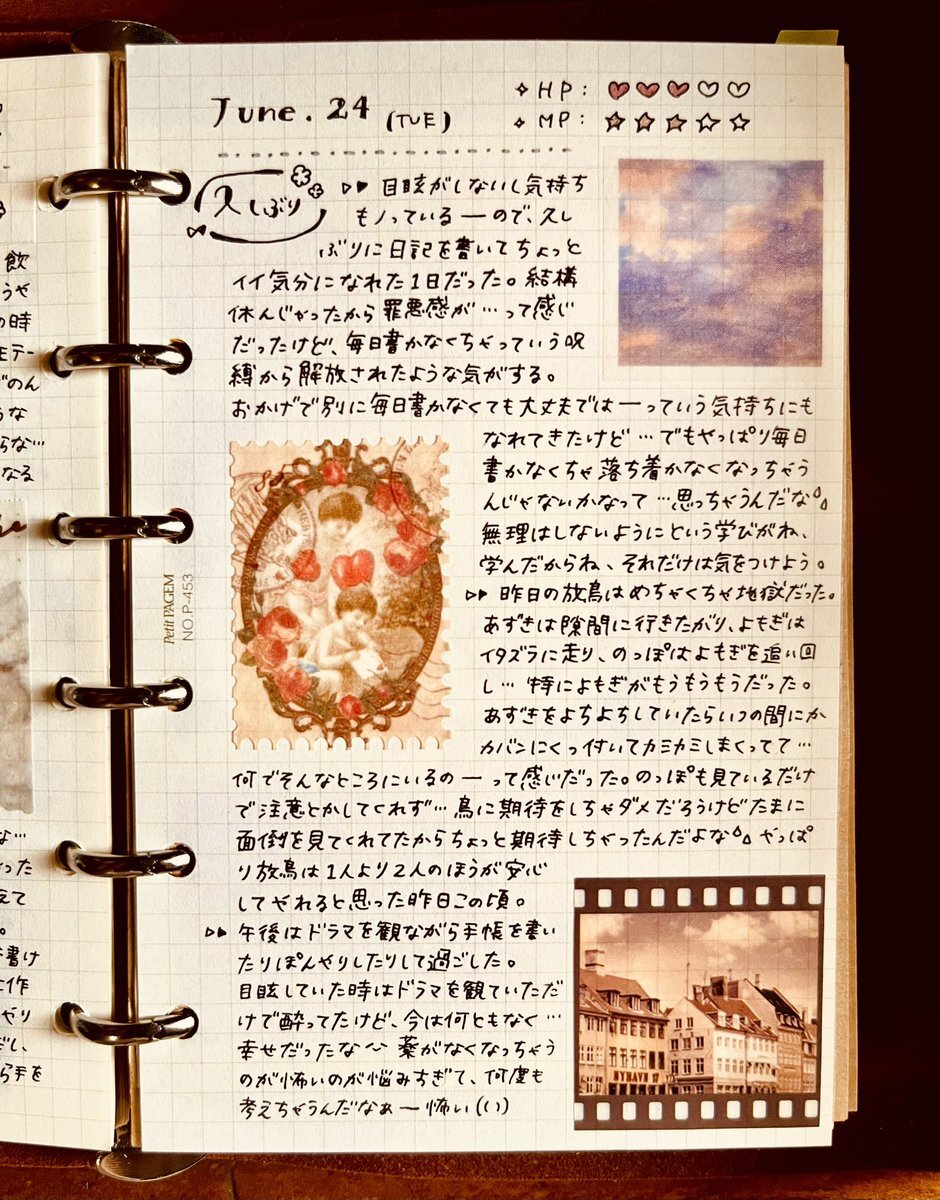 June. 24 (TUE)
✧ HP: ♥♥♥♡♡
✧ MP: ★★★☆☆
久しぶり
▷▶ 目眩がしないし気持ち
もノっている ― ので、久し
ぶりに日記を書いてちょっと
イイ気分になれた1日だった。結構
休んじゃったから罪悪感が…って感じ
だったけど、毎日書かなくちゃっていう呪
縛から解放されたような気がする。
おかげで別に毎日書かなくても大丈夫では ― っていう気持ちにも
なれてきたけど…でもやっぱり毎日
書かなくちゃ落ち着かなくなっちゃう
んじゃないかなって…思っちゃうんだな
無理はしないようにという学びがね、
学んだからね、それだけは気をつけよう。
▷▶ 昨日の放鳥はめちゃくちゃ地獄だった。
あずきは隙間に行きたがり、よもぎは
イタズラに走り、のっぽはよもぎを追い回
し…特によもぎがもうもうもうだった。
あずきをよちよちしていたらいつの間にか
カバンにくっ付いてカミカミしまくってて…
何でそんなところにいるの ― って感じだった。のっぽも見ているだけ
で注意とかしてくれず…鳥に期待をしちゃダメだろうけどたまに
面倒を見てくれてたからちょっと期待しちゃったんだよな やっぱ
り放鳥は1人より2人のほうが安心
してやれると思った昨日この頃。
▷▶ 午後はドラマを観ながら手帳を書い
たりぼんやりしたりして過ごした。
目眩していた時はドラマを観ていただ
けで酔ってたけど、今は何ともなく…
幸せだったな〜 薬がなくなっちゃう
のが怖いのが悩みすぎて、何度も
考えちゃうんだなぁ ― 怖い(い)
Petit PAGEM
NO.P-453
NYHAVN 17
飲
の時
モテー
どのん
うな
らな…
なる
な…
った
えて
書け
作
やり
だし、
ら手を